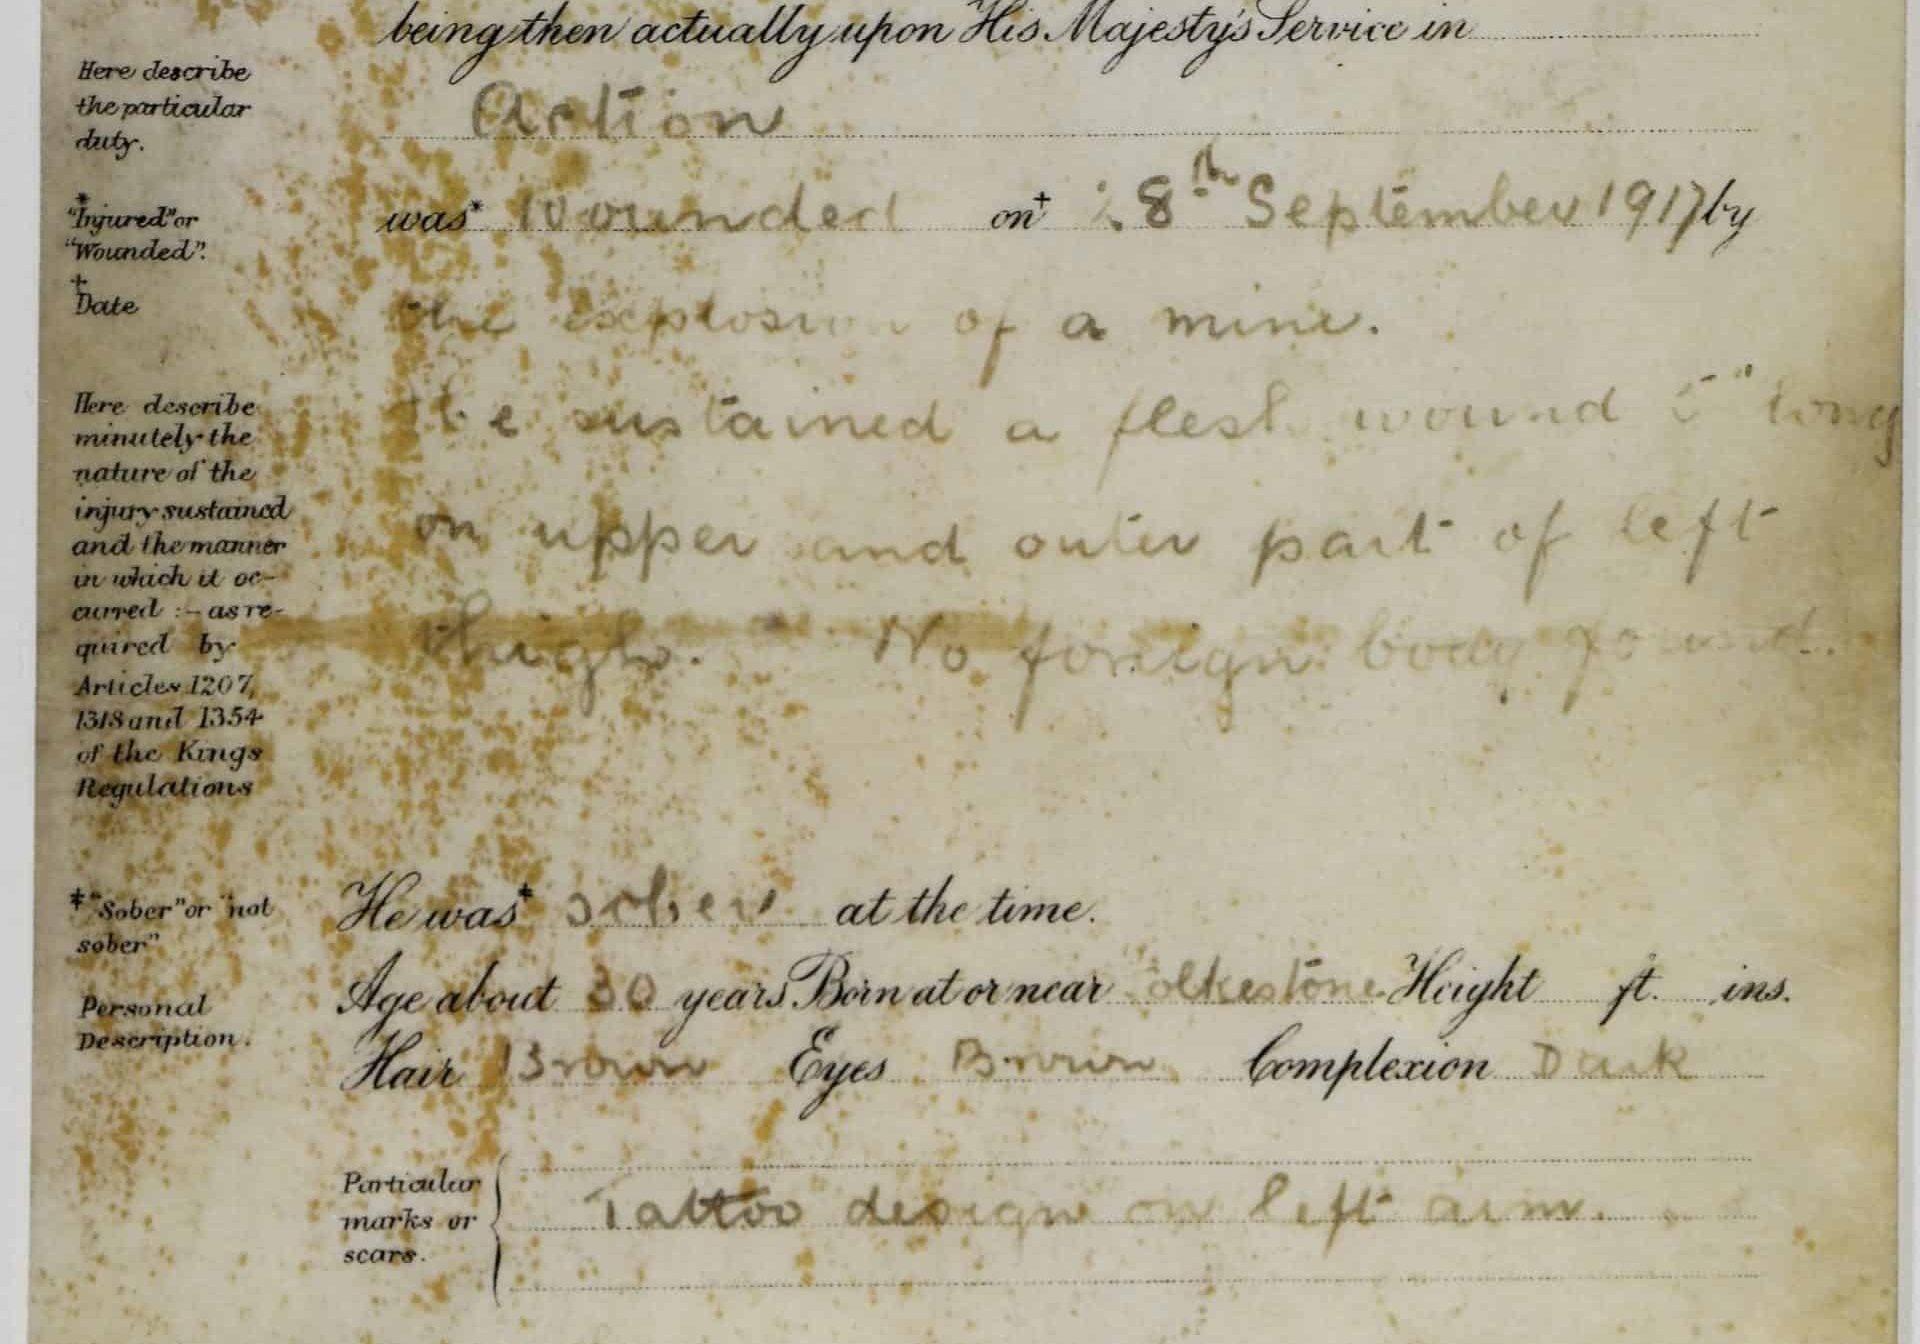 being then actually upon His Majesty's Service in
Here describe
the particular
duty.
Action
* "Injured" or
"Wounded".
† Date
was* Wounded on† 28th September 1917 by
the explosion of a mine.
Here describe
minutely the
nature of the
injury sustained
and the manner
in which it oc-
curred :- as re-
quired by
Articles 1207,
1318 and 1354
of the Kings
Regulations
He sustained a flesh wound 5" long
on upper and outer part of left
thigh. No foreign body found.
‡ "Sober" or "not
sober"
He was‡ sober at the time.
Personal
Description.
Age about 30 years Born at or near Folkestone Height ft. ins.
Hair Brown Eyes Brown Complexion Dark
Particular
marks or
scars.
Tattoo designs on left arm.